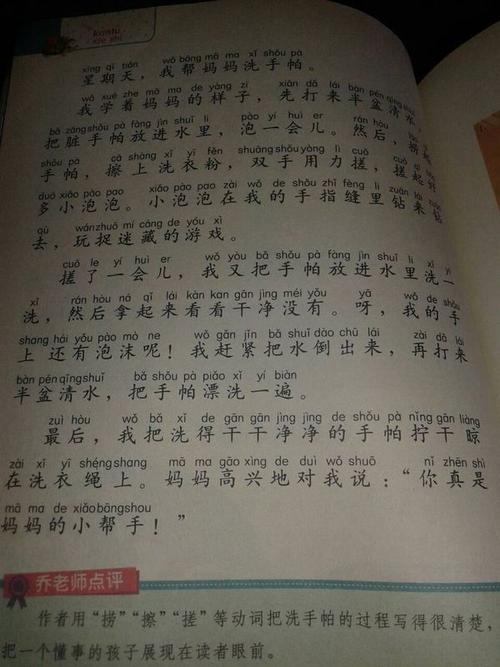 xīng qī tiān wǒ bāng mā ma xǐ shǒu pà
星期天，我帮妈妈洗手帕。
wǒ xué zhe mā ma de yàng zi xiān dǎ lái bàn pén qīng shuǐ
我学着妈妈的样子，先打来半盆清水
bǎ zāng shǒu pà fàng jìn shuǐ lǐ pào yí huì er rán hòu
把脏手帕放进水里，泡一会儿。然后，捞起
shǒu pà cā shàng xǐ yī fěn shuāng shǒu yòng lì cuō
手帕，擦上洗衣粉，双手用力搓，搓起
duō xiǎo pào pao xiǎo pào pao zài wǒ de shǒu zhǐ fèng lǐ zuān lái
多小泡泡。小泡泡在我的手指缝里钻来钻
qù wán zhuō mí cáng de yóu xì
去，玩捉迷藏的游戏。
cuō le yí huì er wǒ yòu bǎ shǒu pà fàng jìn shuǐ lǐ xǐ yī
搓了一会儿，我又把手帕放进水里洗一
xǐ rán hòu ná qǐ lái kàn kan gān jìng méi yǒu yā wǒ de shǒu
洗，然后拿起来看看干净没有。呀，我的手
shang hái yǒu pào mò ne wǒ gǎn jǐn bǎ shuǐ dào chū lái zài dǎ lái
上还有泡沫呢！我赶紧把水倒出来，再打来
bàn pén qīng shuǐ bǎ shǒu pà piǎo xǐ yí biàn
半盆清水，把手帕漂洗一遍。
zuì hòu wǒ bǎ xǐ de gān gān jìng jìng de shǒu pà nǐng gān liàng
最后，我把洗得干干净净的手帕拧干晾
zài xǐ yī shéng shang mā ma gāo xìng de duì wǒ shuō nǐ zhēn shì
在洗衣绳上。妈妈高兴地对我说：“你真是
mā ma de xiǎo bāng shou
妈妈的小帮手！”
乔老师点评
作者用“捞”“擦”“搓”等动词把洗手帕的过程写得很清楚，
把一个懂事的孩子展现在读者眼前。